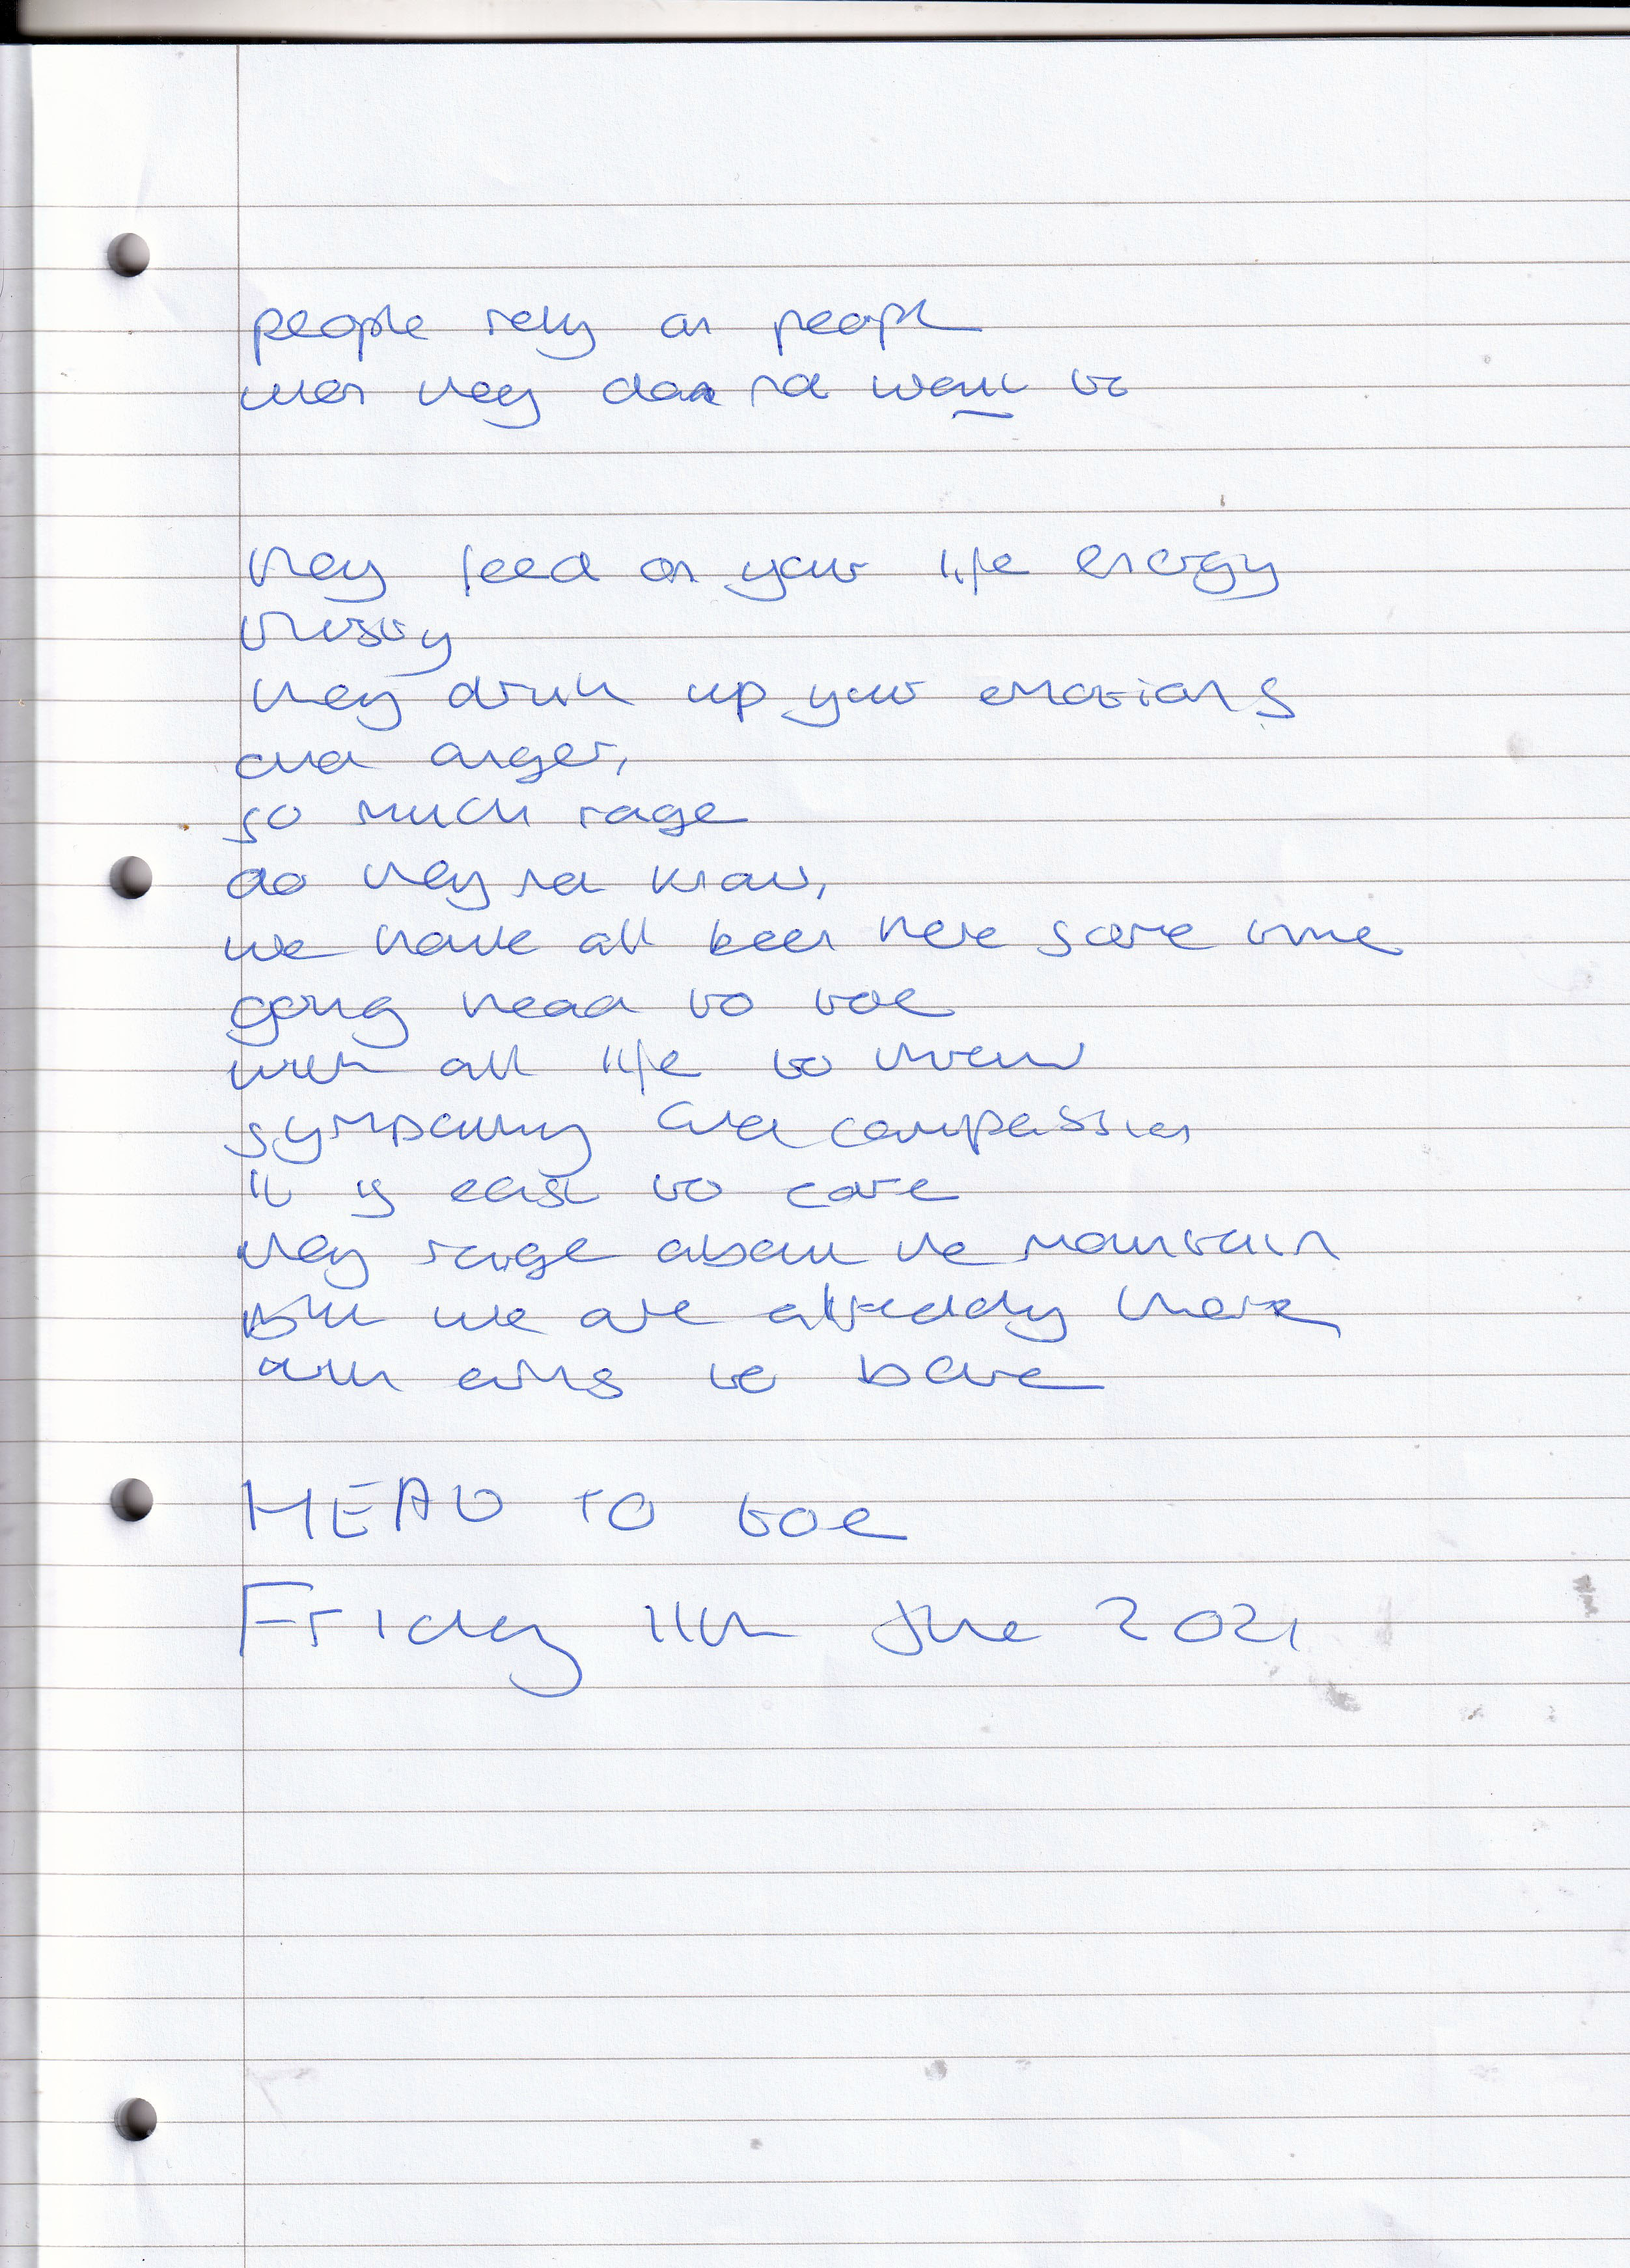 people rely on people
when they do not want to
they feed on your life energy
thirsty
they drink up your emotions
and anger,
so much rage
do they not know,
we have all been here some time
going head to toe
with all life to throw
sympathy and compassion
it is easy to care
they rage about the mountain
but we are already there
with arms to bare
HEAD TO toe
Friday 11th June 2021